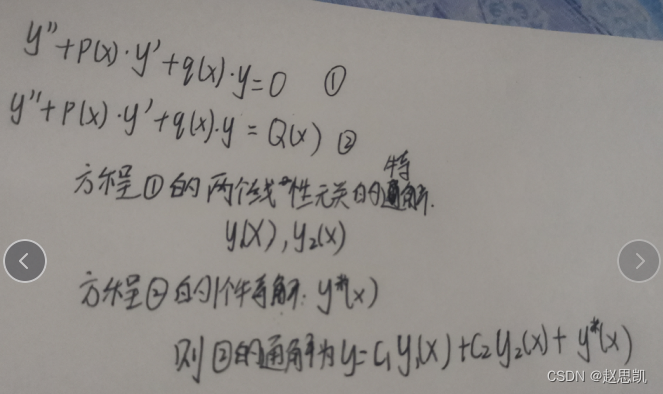 y''+P(x)·y'+q(x)·y=0 ①
y''+P(x)·y'+q(x)·y=Q(x) ②
方程①的两个线性无关的特解.
y₁(x),y₂(x)
方程②的1个特解:y*(x)
则②的通解为y=C₁y₁(x)+C₂y₂(x)+y*(x)
CSDN @赵思凯